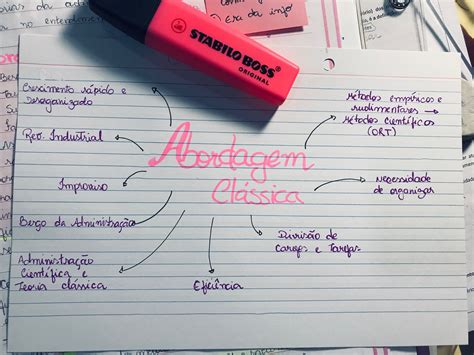 Era da info
STABILO BOSS
ORIGINAL
Crescimento rápido e
desorganizado
Rev. Industrial
Improviso
Berço da Administração
Administração
Científica e
Teoria clássica
Abordagem
Clássica
Métodos empíricos e
rudimentares →
Métodos científicos
(ORT)
necessidade
de organizar
Divisão de
Cargos e Tarefas
Eficiência